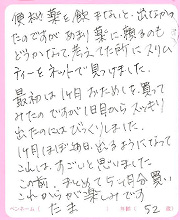 便利薬を飲まないと、出なかっ
たのですがあまり薬に頼るのも
どうかなって考えてた所にスリム
ティーをネットで見つけました。
最初は1ヶ月おためしを買って
みたのですが1日目からスッキリ
出たのにはびっくりしました。
1ヶ月ほぼ毎日、出るようになって
これは、すごいと思いました
この前、まとめて5ヶ月分買い
これからが楽しみです
たま
ペンネーム( )年齢( 52 歳)